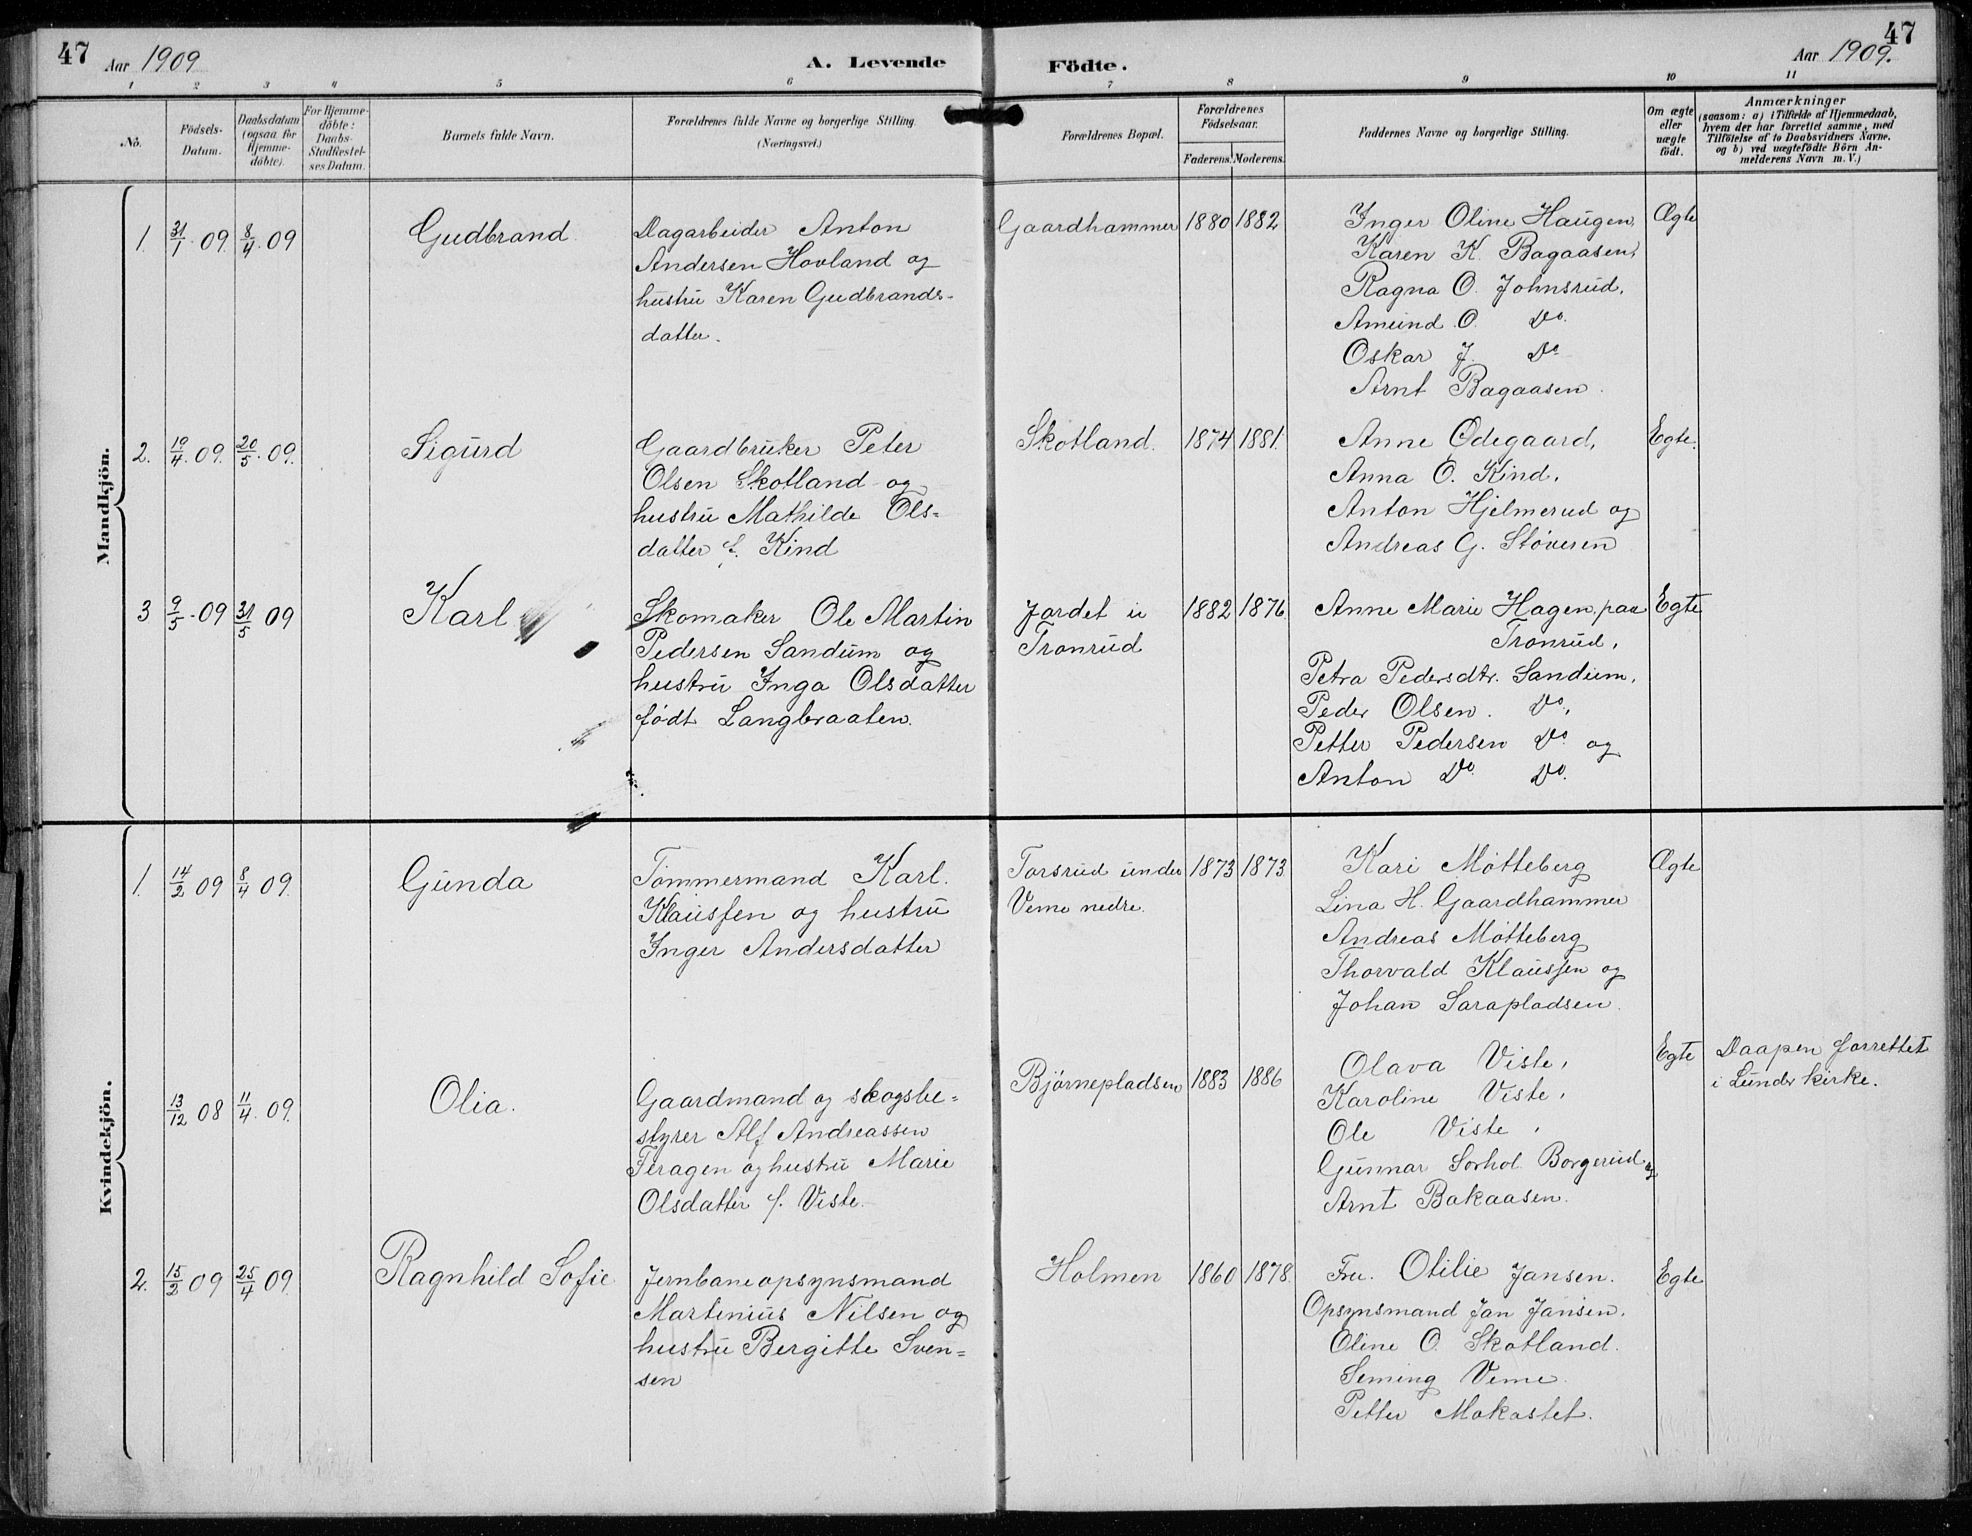 47 Aar 1909 A. Levende Födte. Aar 1909. 47
1 2 3 4 5 6 7 8 9 10 11
No.
Födsels-
Datum.
Daabsdatum
(ogsaa for
Hjemme-
döbte).
For Hjemme-
döbte:
Daabs-
Stadfæstel-
ses Datum.
Barnets fulde Navn.
Forældrenes fulde Navne og borgerlige Stilling
(Næringsvei.)
Forældrenes Bopæl.
Forældrenes
Födselsaar.
Faderens. Moderens.
Faddernes Navne og borgerlige Stilling.
Om ægte
eller
uægte
födt.
Anmærkninger
(saasom: a) i Tilfælde af Hjemmedaab,
hvem der har forrettet samme, med
Tilföielse af to Daabsvidners Navne.
og b) ved uægtefödte Börn An-
melderens Navn m. V.)
Mandkjön.
1 31/1 09. 8/4 09
Gudbrand
Dagarbeider Anton
Andersen Hovland og
hustru Karen Gudbrands-
datter.
Gaardhammer 1880 1882
Inger Oline Haugen,
Karen K. Bagaasen,
Ragna O. Johnsrud,
Amund O. Do.
Oskar J. Do
Arnt Bagaasen.
Ægte
2. 19/4 09. 20/5 09.
Sigurd
Gaardbruker Peter
Olsen Skotland og
hustru Mathilde Ols=
datter f. Kind
Skotland. 1874 1881.
Anne Ødegaard,
Anna O. Kind,
Anton Hjelmerud og
Andreas G. Støveren
Egte.
3 9/5 09 31/5 09
Karl
Skomaker Ole Martin
Pedersen Sandum og
hustru Inga Olsdatter
født Langbraaten.
Jordet u
Tronrud
1882 1876
Anne Marie Hagen, paa
Tronrud,
Petra Pedersdtr. Sandum,
Peder Olsen. Do,
Petter Pedersen Do og
Anton Do Do.
Egte
Kvindekjön.
1. 14/2 09 8/4 09.
Gunda
Tømmermand Karl
Klaussen og hustru
Inger Andersdatter
Torsrud under
Veme nedre.
1873 1873
Kari Møtteberg
Lina H. Gaardhammer
Andreas Møtteberg
Thorvald Klaussen og
Johan Sarapladsen.
Ægte
13/12 08 11/4 09.
Olia.
Gaardmand og skogsbe=
styrer Alf Andreassen
Feragen og hustru Marie
Olsdatter f. Viste.
Bjørnepladsen 1883 1886
Olava Viste,
Karoline Viste,
Ole Viste,
Gunnar Sorhol Borgerud og
Arnt Bakaasen.
Egte
Daapen forrettet
i Lunder kirke.
2. 15/2 09 25/4 09.
Ragnhild Sofie
Jernbaneopsynsmand
Martinius Nilsen og
hustru Bergitte Sven=
sen
Holmen 1860 1878.
Fru. Otilie Jansen.
Opsynsmand Jan Jansen.
Oline O. Skotland.
Seming Veme.
Petter Mokastet.
Egte